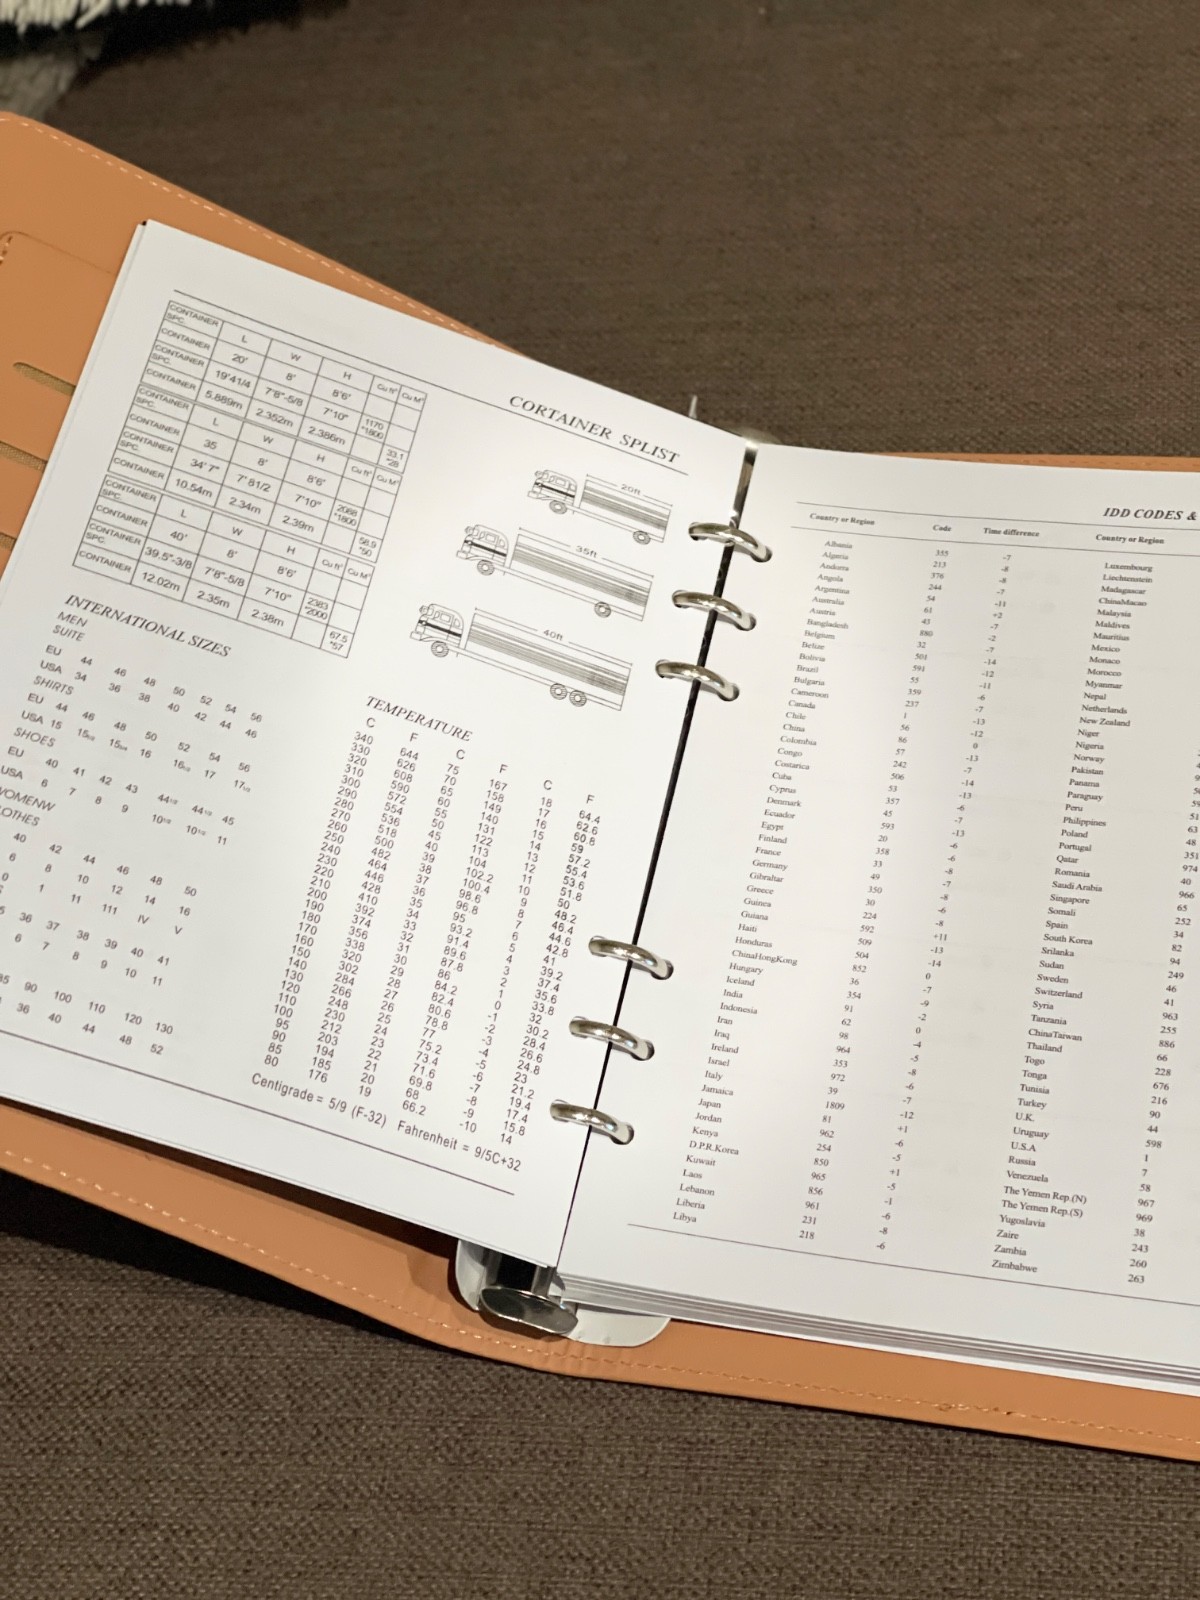 CORTAINER SPLIST
CONTAINER SPC. L W H Cu ft' Cu M'
CONTAINER 20' 8' 8'6'
SPC. CONTAINER 19'41/4 7'8"-5/8 7'10" 1170 *1800
CONTAINER 5.889m 2.352m 2.386m 33.1 *28
CONTAINER SPC. L W H Cu ft' Cu M'
CONTAINER 35 8' 8'6'
SPC. CONTAINER 34' 7" 7' 81/2 7'10" 2088 *1800
CONTAINER 10.54m 2.34m 2.39m 58.9 *50
CONTAINER SPC. L W H Cu ft' Cu M'
CONTAINER 40' 8' 8'6'
SPC. CONTAINER 39.5"-3/8 7'8"-5/8 7'10" 2383 *2000
CONTAINER 12.02m 2.35m 2.38m 67.5 *57
20ft
35ft
40ft
INTERNATIONAL SIZES
MEN
SUITE
EU 44 46 48 50 52 54 56
USA 34 36 38 40 42 44 46
SHIRTS
EU 44 46 48 50 52 54 56
USA 15 15 1/2 15 3/4 16 16 1/2 17 17 1/2
SHOES
EU 40 41 42 43 44 1/2 44 1/2 45
USA 6 7 8 9 10 1/2 10 1/2 11
WOMENW
LOTHES
40 42 44 46 48 50
6 8 10 12 14 16
0 1 11 111 IV V
36 37 38 39 40 41
6 7 8 9 10 11
85 90 100 110 120 130
36 40 44 48 52
TEMPERATURE
C F C F C F
340 644 75 167 18 64.4
330 626 70 158 17 62.6
320 608 65 149 16 60.8
310 590 60 140 15 59
300 572 55 131 14 57.2
290 554 50 122 13 55.4
280 536 45 113 12 53.6
270 518 40 104 11 51.8
260 500 39 102.2 10 50
250 482 38 100.4 9 48.2
240 464 37 98.6 8 46.4
230 446 36 96.8 7 44.6
220 428 35 95 6 42.8
210 410 34 93.2 5 41
200 392 33 91.4 4 39.2
190 374 32 89.6 3 37.4
180 356 31 87.8 2 35.6
170 338 30 86 1 33.8
160 320 29 84.2 0 32
150 302 28 82.4 -1 30.2
140 284 27 80.6 -2 28.4
130 266 26 78.8 -3 26.6
120 248 25 77 -4 24.8
110 230 24 75.2 -5 23
100 212 23 73.4 -6 21.2
95 203 22 71.6 -7 19.4
90 194 21 69.8 -8 17.4
85 185 20 68 -9 15.8
80 176 19 66.2 -10 14
Centigrade = 5/9 (F-32) Fahrenheit = 9/5C+32
IDD CODES &
Country or Region Code Time difference Country or Region
Albania 355 -7 Luxembourg
Algeria 213 -8 Liechtenstein
Andorra 376 -8 Madagascar
Angola 244 -7 ChinaMacao
Argentina 54 -11 Malaysia
Australia 61 +2 Maldives
Austria 43 -7 Mauritius
Bangladesh 880 -2 Mexico
Belgium 32 -7 Monaco
Belize 501 -14 Morocco
Bolivia 591 -12 Myanmar
Brazil 55 -11 Nepal
Bulgaria 359 -6 Netherlands
Cameroon 237 -7 New Zealand
Canada 1 -13 Niger
Chile 56 -12 Nigeria
China 86 0 Norway
Colombia 57 -13 Pakistan
Congo 242 -7 Panama
Costarica 506 -14 Paraguay
Cuba 53 -13 Peru 51
Cyprus 357 -6 Philippines 63
Denmark 45 -7 Poland 48
Ecuador 593 -13 Portugal 351
Egypt 20 -6 Qatar 974
Finland 358 -6 Romania 40
France 33 -8 Saudi Arabia 966
Germany 49 -7 Singapore 65
Gibraltar 350 -8 Somali 252
Greece 30 -6 Spain 34
Guinea 224 -8 South Korea 82
Guiana 592 +11 Srilanka 94
Haiti 509 -13 Sudan 249
Honduras 504 -14 Sweden 46
ChinaHongKong 852 0 Switzerland 41
Hungary 36 -7 Syria 963
Iceland 354 -9 Tanzania 255
India 91 -2 ChinaTaiwan 886
Indonesia 62 0 Thailand 66
Iran 98 -4 Togo 228
Iraq 964 -5 Tonga 676
Ireland 353 -8 Tunisia 216
Israel 972 -6 Turkey 90
Italy 39 -7 U.K. 44
Jamaica 1809 -12 Uruguay 598
Japan 81 +1 U.S.A 1
Jordan 962 -6 Russia 7
Kenya 254 -5 Venezuela 58
D.P.R.Korea 850 +1 The Yemen Rep.(N) 967
Kuwait 965 -5 The Yemen Rep.(S) 969
Laos 856 -1 Yugoslavia 38
Lebanon 961 -6 Zaire 243
Liberia 231 -8 Zambia 260
Libya 218 -6 Zimbabwe 263